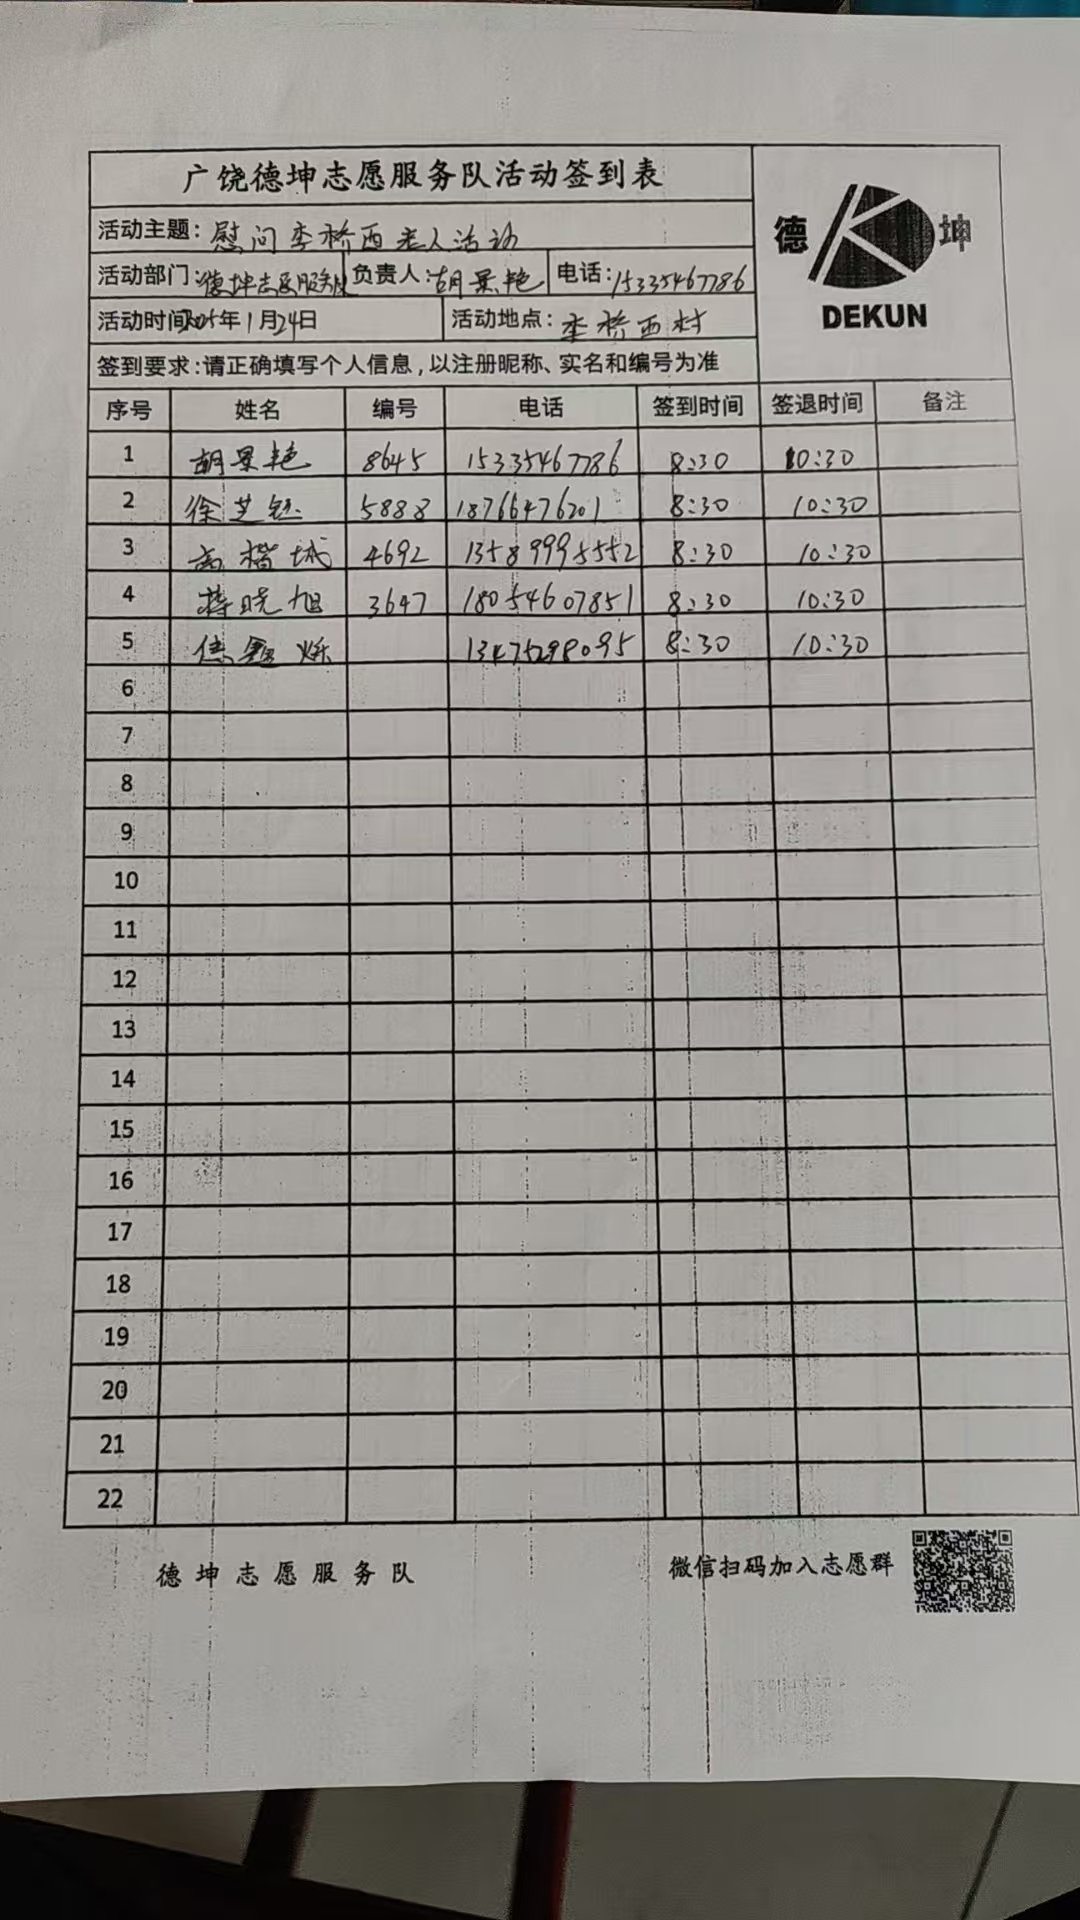 广饶德坤志愿服务队活动签到表
德 坤
DEKUN
活动主题：慰问李桥西老人活动
活动部门：德坤志愿服务队 负责人：胡景艳 电话：15335467786
活动时间：2025年1月24日 活动地点：李桥西村
签到要求：请正确填写个人信息，以注册昵称、实名和编号为准
序号 姓名 编号 电话 签到时间 签退时间 备注
1 胡景艳 8645 15335467786 8:30 10:30
2 徐芝钰 5888 18766476201 8:30 10:30
3 高楷城 4692 13589995552 8:30 10:30
4 蒋晓旭 3647 18054607851 8:30 10:30
5 信鑫烁 13475298095 8:30 10:30
6
7
8
9
10
11
12
13
14
15
16
17
18
19
20
21
22
德坤志愿服务队 微信扫码加入志愿群